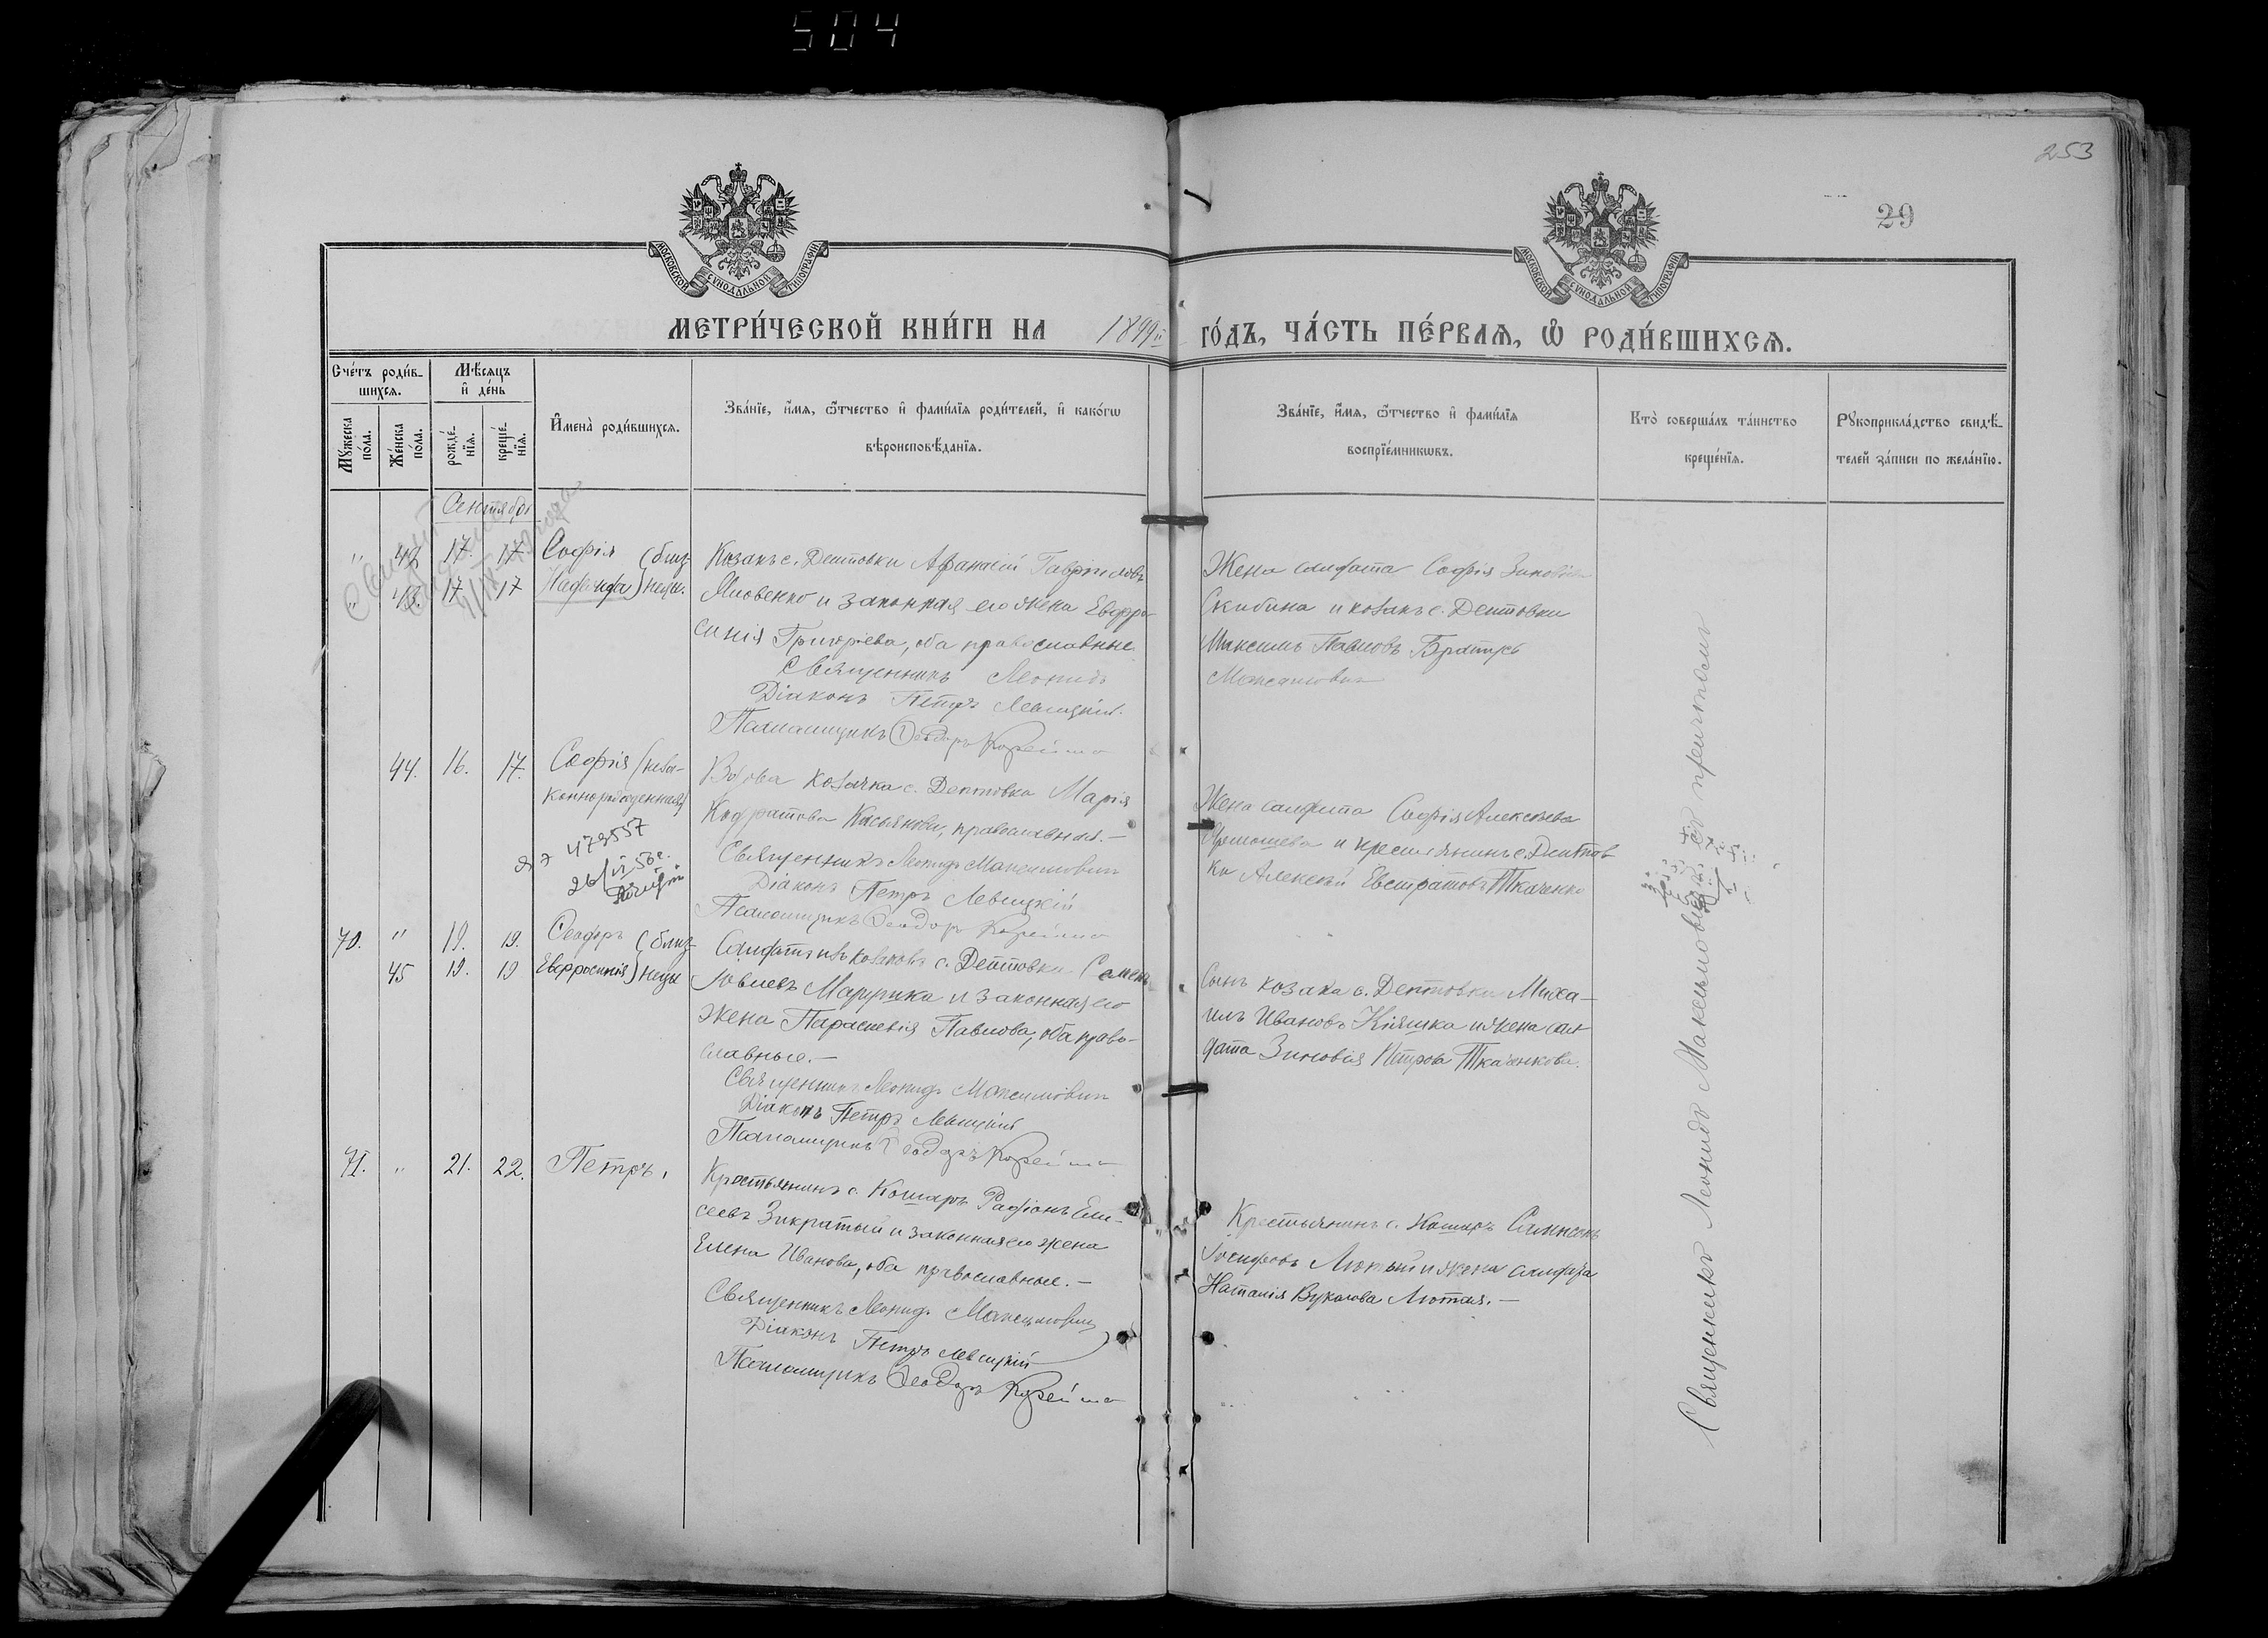 504
253
29
МОСКОВСКОЙ СѴНОДАЛЬНОЙ ТИПОГРАФІИ
МОСКОВСКОЙ СѴНОДАЛЬНОЙ ТИПОГРАФІИ
МЕТРИ́ЧЕСКОЙ КНИ́ГИ НА 1899й ГО́ДЪ, ЧА́СТЬ ПЕ́РВАѦ, Ѡ҆ РОДИ́ВШИХСѦ.
Сче́тъ роди́в-
шихсѧ.
Мꙋжеска по́ла.
Же́нска по́ла.
Мѣ́сѧцъ и҆ де́нь
рожде́-нїѧ.
креще́-нїѧ.
И҆мена̀ роди́вшихсѧ.
Зва́нїе, и҆́мѧ, ѻ҆́тчество и҆ фами́лїѧ роди́телей, и҆ како́гѡ
вѣроисповѣ́данїѧ.
Зва́нїе, и҆́мѧ, ѻ҆́тчество и҆ фами́лїѧ
воспрїе́мникѡвъ.
Кто̀ соверша́лъ та́инство
креще́нїѧ.
Рꙋкоприкла́дство свидѣ́-
телей за́писи по жела́нїю.
Сентябрь
" 42 17. 17 Софія (близ-
" 43. 17 17 ) нецы.
Козакъ с. Дептовки Афанасій Гавриловъ
Яковенко и законная его жена Евфро-
синія Григорьева, оба православные
Священникъ Леонидъ
Діаконъ Петръ Левицкій.
Псаломщикъ Ѳеодоръ Корейша
Жена солдата Софія Зиновіева
Скибина и козакъ с. Дептовки
Максимъ Павловъ Братусь
Максимович
44. 16. 17. Софія (неза-
коннорожденная)
479557
26/VI 56г.
Вдова козачка с. Дептовки Марія
Кодратова Касьянова, православная.—
Священникъ Леонидъ Максимович
Діаконъ Петръ Левицкій
Псаломщикъ Ѳеодоръ Корейша
Жена солдата Софія Алексѣева
и крестьянинъ с. Дептов
ки Алексѣй Евстратовъ Ткаченко
70. " 19. 19. Ѳеодоръ (близ-
45 19. 19 Евфросинія) нецы
Солдатъ изъ козаковъ с. Дептовки Семенъ
Іовлевъ и законная его
жена Параскевія Павлова, оба право-
славные.—
Священникъ Леонидъ Максимович
Діаконъ Петръ Левицкій
Псаломщикъ Ѳеодоръ Корейша
Сынъ козака с. Дептовки Миха-
илъ Ивановъ Кіяшка и жена сол-
дата Зиновія Петрова Ткаченкова.
71. " 21. 22. Петръ.
Крестьянинъ с. Кошаръ Родіонъ Ели-
сеевъ Зикратый и законная его жена
Елена Иванова, оба православные.—
Священникъ Леонидъ Максимович
Діаконъ Петръ Левицкій
Псаломщикъ Ѳеодоръ Корейша
Крестьянинъ с. Кошаръ Сампсонъ
Іосифовъ Лютый и жена солдата
Наталія Вуколова Лютая.—
Священникъ Леонидъ Максимович съ причтомъ